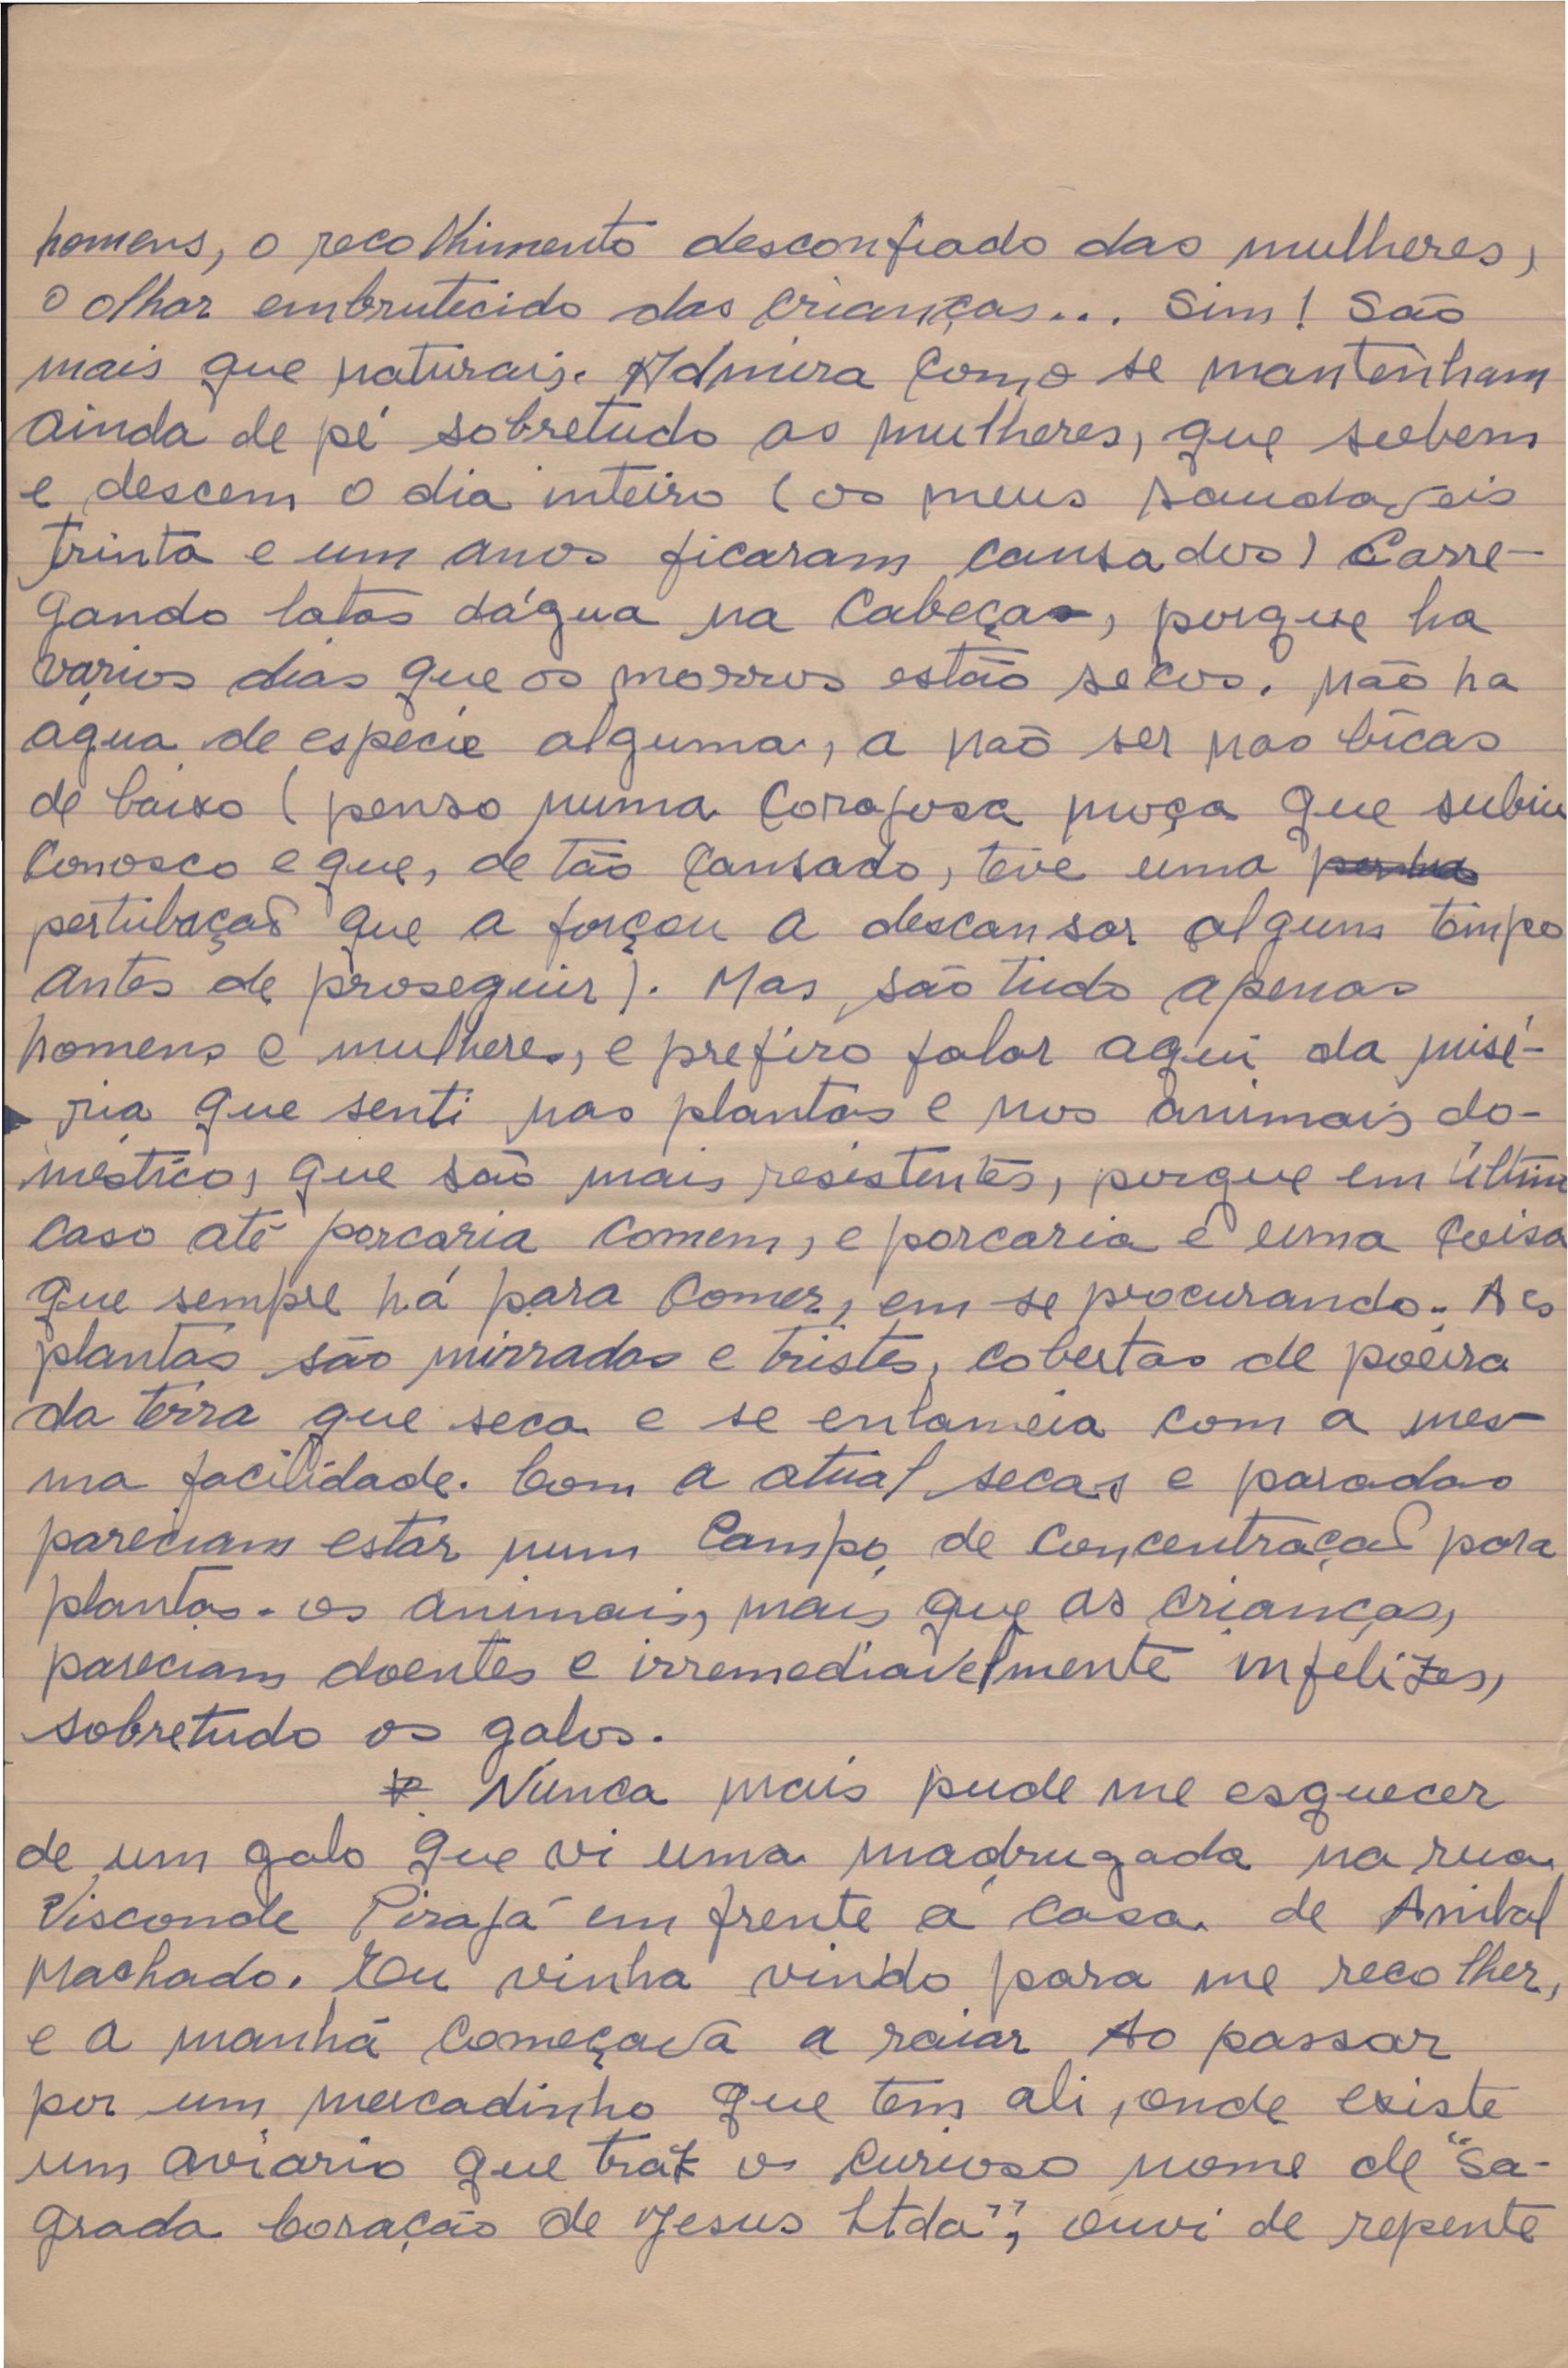 homens, o recolhimento desconfiado das mulheres,
o olhar embrutecido das crianças... Sim! São
mais que naturais. Admira como se mantenham
ainda de pé sobretudo as mulheres, que subem
e descem o dia inteiro (os meus saudaveis
trinta e um anos ficaram cansados) carre-
gando latas dágua na cabeça, porque ha
varios dias que os morros estão secos. não ha
agua de espécie alguma, a não ser nas bicas
de baixo (penso numa corajosa moça que subiu
conosco e que, de tão cansada, teve uma
pertubação que a forçou a descansar algum tempo
antes de proseguir). Mas são tudo apenas
homens e mulheres, e prefiro falar aqui da misé-
ria que senti nas plantas e nos animais do-
mésticos, que são mais resistentes, porque em últim
caso até porcaria comem, e porcaria é uma coisa
que sempre há para comer, em se procurando. As
plantas são mirradas e tristes, cobertas de poeira
da terra que seca e se enlameia com a mes-
ma facilidade. Com a atual secas e paradas
pareciam estar num campo de concentração para
plantas. os animais, mais que as crianças,
pareciam doentes e irremediavelmente infelizes,
sobretudo os galos.
Nunca mais pude me esquecer
de um galo que vi uma madrugada na rua
Visconde Pirajá em frente á casa de Anibal
Machado. Eu vinha vindo para me recolher,
e a manhã começava a raiar Ao passar
por um mercadinho que tem ali, onde existe
um aviario que traz o curioso nome de "Sa-
grada Coração de Jesus Ltda", ouvi de repente